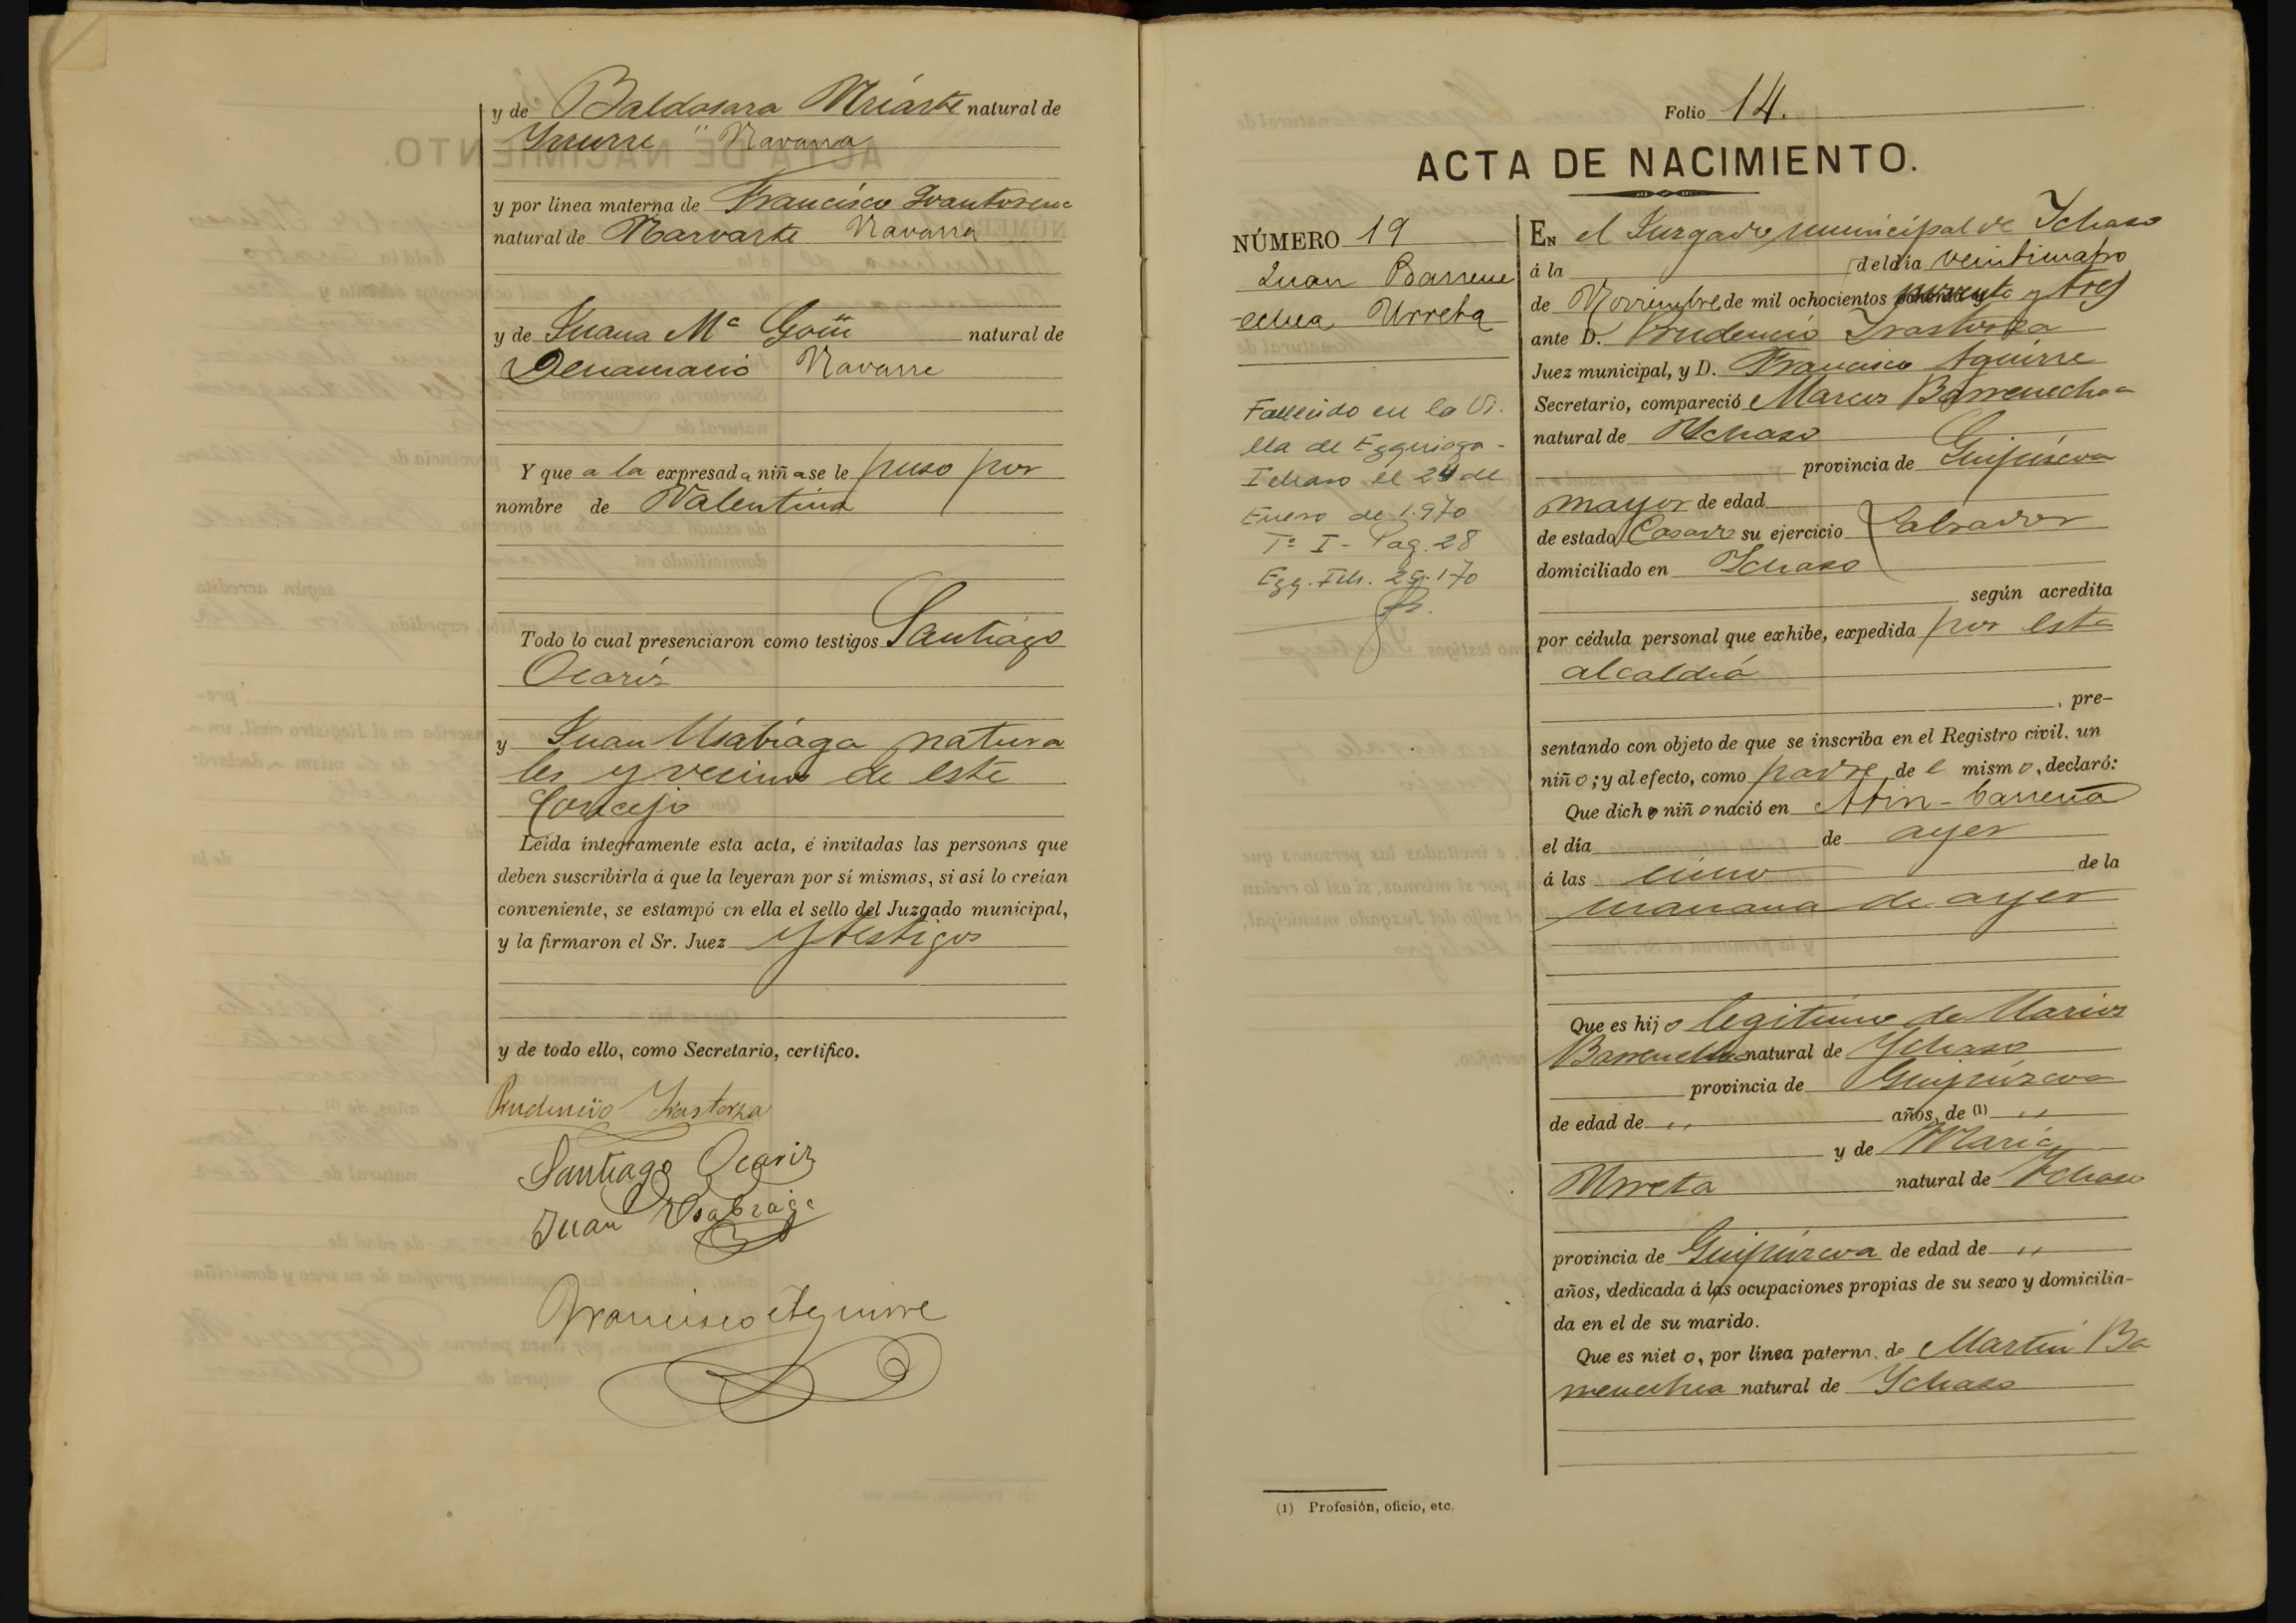 y de Baldasara Uriarte natural de
Yrurre " Navarra
y por línea materna de Francisco
natural de Narvarte Navarra
y de Juana Mª Goñi natural de
Navarra
Y que a la expresada niña se le puso por
nombre de Valentina
Todo lo cual presenciaron como testigos Santiago
Ocariz
y Juan Usabiaga natura
les y vecinos de este
Concejo
Leída íntegramente esta acta, é invitadas las personas que
deben suscribirla á que la leyeran por sí mismas, si así lo creían
conveniente, se estampó en ella el sello del Juzgado municipal,
y la firmaron el Sr. Juez y testigos
y de todo ello, como Secretario, certifico.
Prudencio Irastorza
Santiago Ocariz
Juan Usabiaga
Francisco Aguirre
Folio 14.
ACTA DE NACIMIENTO.
NÚMERO 19
Juan Barrene
echea Urreta
Fallecido en la Vi.
lla de Ezquioga -
Ichaso el 24 de
Enero de 1.970
Tº I - Pag. 28
Ezq. Ich. 25.1.70
EN el Juzgado municipal de Ichaso
á la del día veinticuatro
de Noviembre de mil ochocientos noventa y tres
ante D. Prudencio Irastorza
Juez municipal, y D. Francisco Aguirre
Secretario, compareció Marcos Barrenechea
natural de Ichaso
provincia de Guipúzcoa
mayor de edad
de estado Casado su ejercicio Labrador
domiciliado en Ichaso
según acredita
por cédula personal que exhibe, expedida por esta
alcaldía
, pre-
sentando con objeto de que se inscriba en el Registro civil, un
niño; y al efecto, como padre de l mismo, declaró:
Que dicho niño nació en Atin-barrena
el día de ayer
á las cinco de la
mañana de ayer
Que es hijo legitimo de Marcos
Barrenechea natural de Ychaso
provincia de Guipúzcoa
de edad de " años, de (1) "
y de Maria
Urreta natural de Ychaso
provincia de Guipúzcoa de edad de "
años, dedicada á las ocupaciones propias de su sexo y domicilia-
da en el de su marido.
Que es nieto, por línea paterna, de Martin Ba
rrenechea natural de Ychaso
(1) Profesión, oficio, etc.